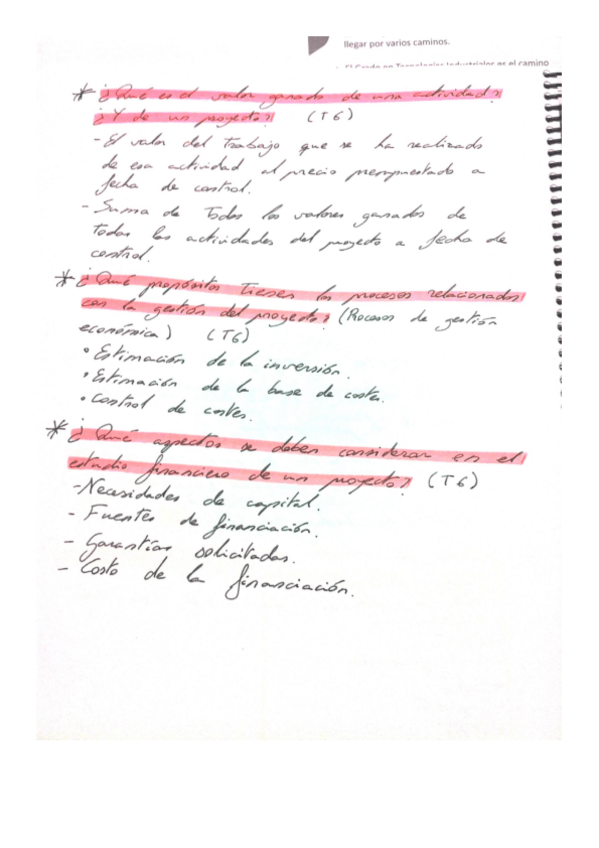 llegar por varios caminos.
El Grado en Tecnologías Industriales es el camino
* ¿Qué es el valor ganado de una actividad?
¿Y de un proyecto? (T6)
- El valor del trabajo que se ha realizado
de esa actividad al precio presupuestado a
fecha de control.
- Suma de todos los valores ganados de
todas las actividades del proyecto a fecha de
control.
* ¿Qué propósitos tienen los procesos relacionados
con la gestión del proyecto? (Procesos de gestión
económica) (T6)
• Estimación de la inversión.
• Estimación de la base de costes.
• Control de costes.
* ¿Qué aspectos se deben considerar en el
estudio financiero de un proyecto? (T6)
- Necesidades de capital.
- Fuentes de financiación.
- Garantías solicitadas.
- Costo de la financiación.